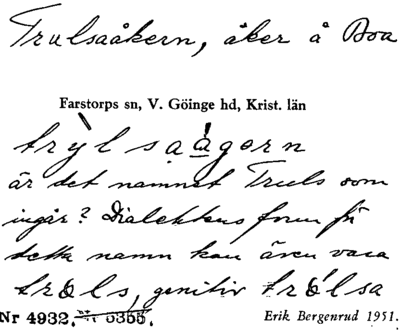 Trulsaåkern, åker å Boa
Farstorps sn, V. Göinge hd, Krist. län
trỳlsaågərn
är det namnet Truls som
ingår? Dialektens form för
detta namn kan även vara
tröls, genitiv trö́lsa
Nr 4932. Nr 5355.
Erik Bergenrud 1951.